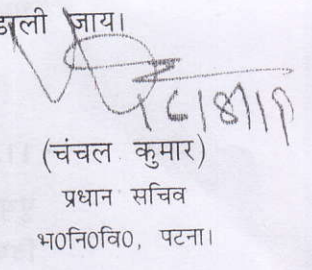 डाली जाय।
(चंचल कुमार)
प्रधान सचिव
भ०नि०वि०, पटना।